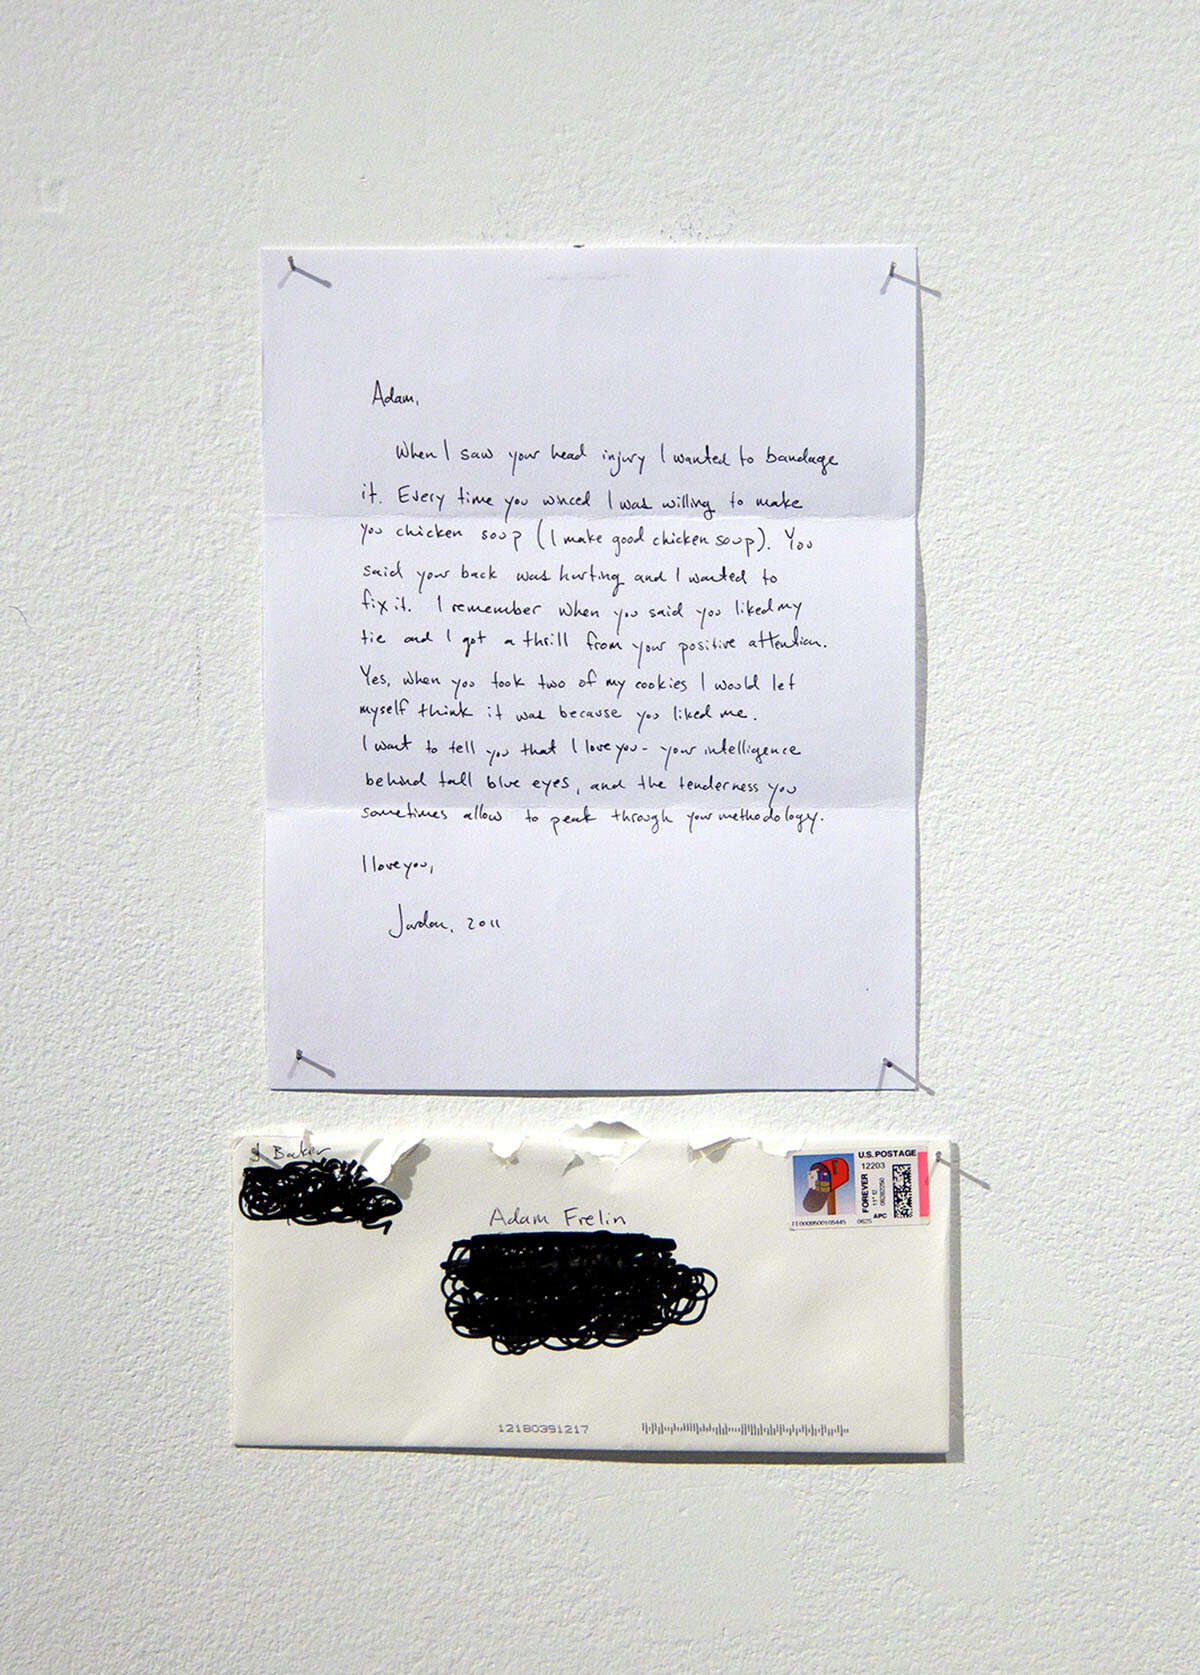 Adam,
When I saw your head injury I wanted to bandage
it. Every time you winced I was willing to make
you chicken soup (I make good chicken soup). You
said your back was hurting and I wanted to
fix it. I remember when you said you liked my
tie and I got a thrill from your positive attention.
Yes, when you took two of my cookies I would let
myself think it was because you liked me.
I want to tell you that I love you - your intelligence
behind tall blue eyes, and the tenderness you
sometimes allow to peak through your methodology.
I love you,
Jordan, 2011
J Baker
U.S. POSTAGE
12203
FOREVER
APC
0625
Adam Frelin
12180391217